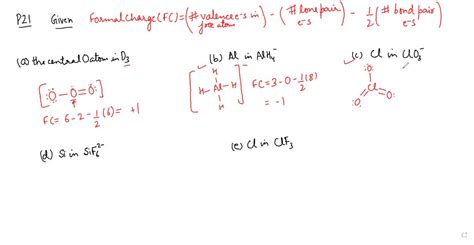 P21 Given Formal Charge (FC) = (# valence e-s in free atom) - (# lone pair e-s) - 1/2 (# bond pair e-s)
(a) the central O atom in O3
(b) Al in AlH4-
(c) Cl in ClO3-
[:Ö-Ö=Ö:]
FC = 6-2-1/2(6) = +1
H
H-Al-H
H
FC = 3-0-1/2(8)
= -1
:O:
Cl
O
O
(d) Si in SiF6 2-
(e) Cl in ClF3